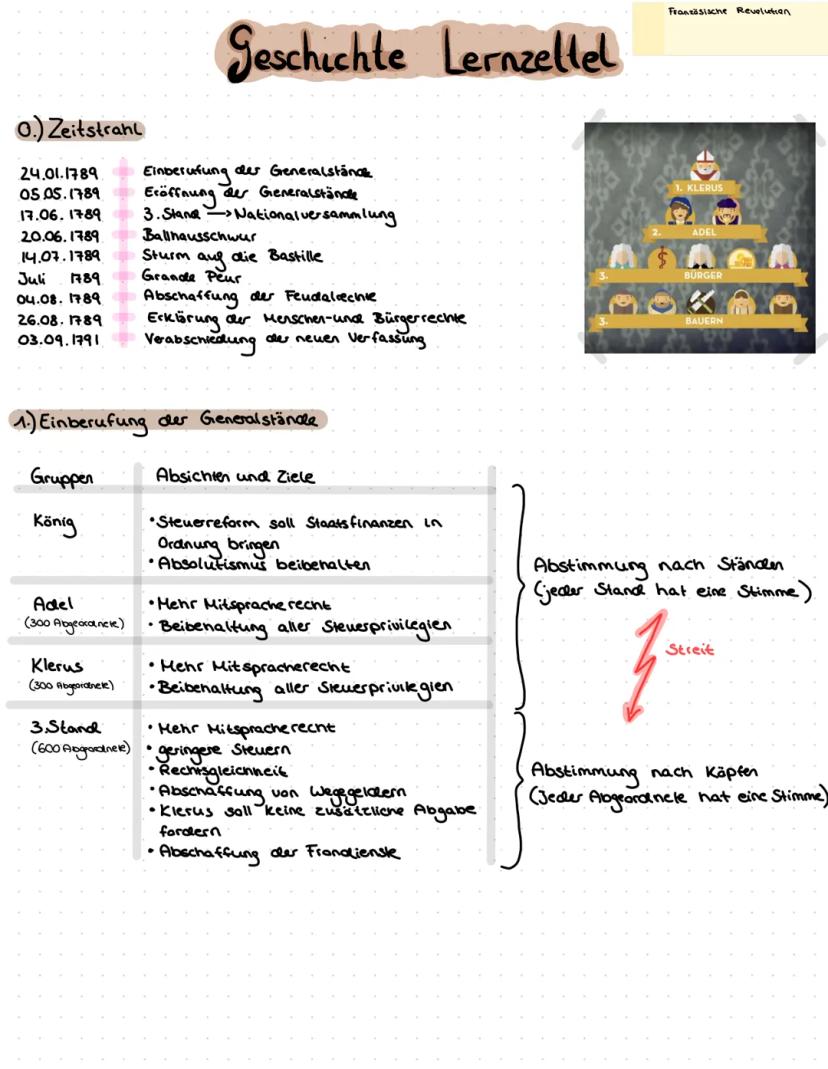 Französische Revolution
Geschichte Lernzettel
0.) Zeitstrahl
24.01.1789 Einberufung der Generalstände
05.05.1789 Eröffnung der Generalstände
17.06.1789 3. Stand → Nationalversammlung
20.06.1789 Ballhausschwur
14.07.1789 Sturm auf die Bastille
Juli 1789 Grande Peur
04.08.1789 Abschaffung der Feudalrechte
26.08.1789 Erklärung der Menschen-und Bürgerrechte
03.09.1791 Verabschiedung der neuen Verfassung
1. KLERUS
2. ADEL
3. BÜRGER
3. BAUERN
1.) Einberufung der Generalstände
Gruppen Absichten und Ziele
König
• Steuerreform soll Staatsfinanzen in
Ordnung bringen
• Absolutismus beibehalten
Adel
(300 Abgeordnete)
• Mehr Mitspracherecht
• Beibehaltung aller Steuerprivilegien
Klerus
(300 Abgeordnete)
• Mehr Mitspracherecht
• Beibehaltung aller Steuerprivilegien
Abstimmung nach Ständen
(jeder Stand hat eine Stimme)
Streit
3.Stand
(600 Abgeordnete)
• Mehr Mitspracherecht
• geringere Steuern
• Rechtsgleichheit
• Abschaffung von Wegegeldern
• Klerus soll keine zusätzliche Abgabe
fordern
• Abschaffung der Frondienste
Abstimmung nach Köpfen
(Jeder Abgeordnete hat eine Stimme)